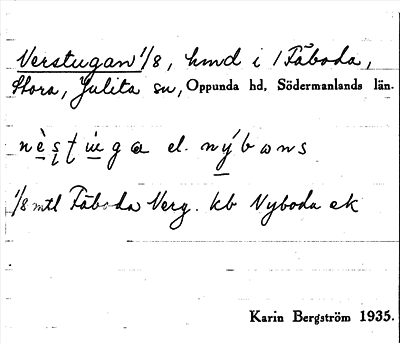 Verstugan 1/8, hmd i 1 Fäboda,
Stora, Julita sn, Oppunda hd, Södermanlands län.
el. nýbωns
1/8 mtl Fäboda Verg. kb Nyboda ek
Karin Bergström 1935.